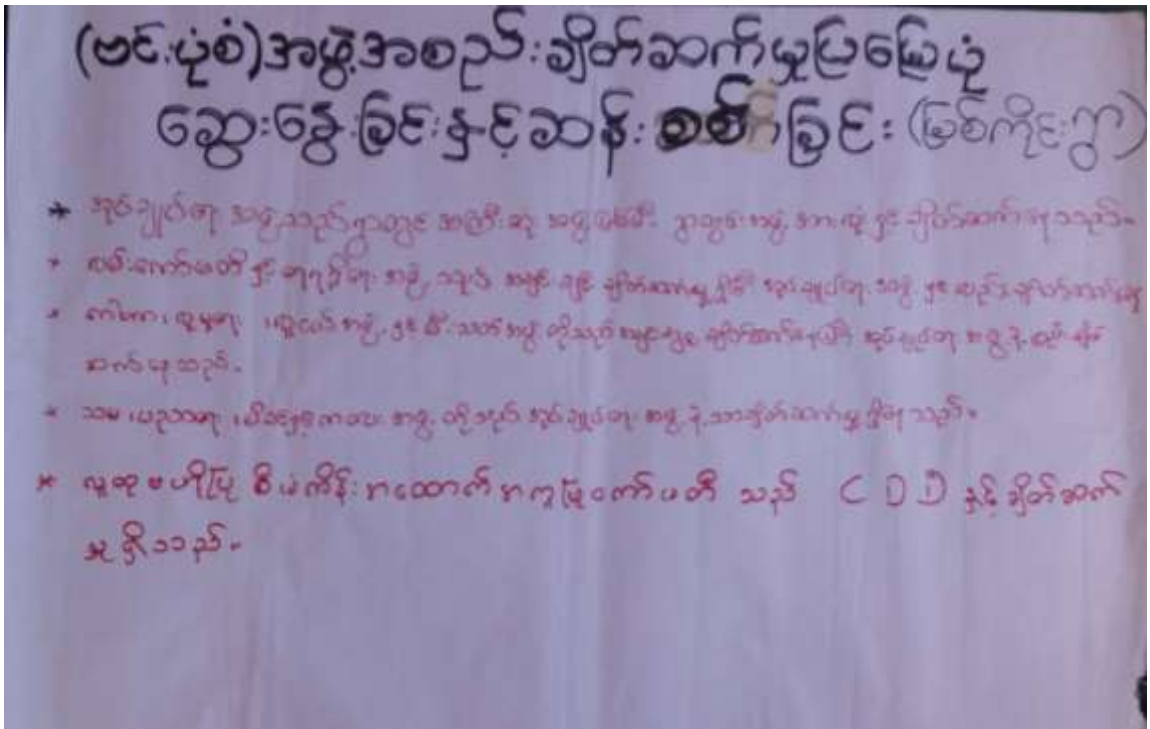 (ဗင်းပုံစံ)အဖွဲ့အစည်းချိတ်ဆက်မှုပြမြေပုံ
ဆွေးနွေးခြင်းနှင့်ဆန်းစစ်ခြင်း (မြစ်ကိုင်းရွာ)
* အုပ်ချုပ်ရေး အဖွဲ့သည်ရွာတွင် အကြီးဆုံး အဖွဲ့ဖြစ်ပြီး ရွာတွင်းအဖွဲ့ အားလုံး နှင့် ချိတ်ဆက်နေသည်။
* လမ်းကော်မတီ နှင့် အဖွဲ့ အချင်းချင်း ချိတ်ဆက်မှု ရှိပြီး အုပ်ချုပ်ရေး အဖွဲ့ နှင့် လည်း ချိတ်ဆက်
* လူမှုရေး ၊ လူငယ် အဖွဲ့ နှင့် မီးသတ် အဖွဲ့ တို့သည် ချိတ်ဆက် အုပ်ချုပ်ရေး အဖွဲ့ နဲ့ လည်း ချိတ်
ဆက်နေသည်။
* ပညာရေး ၊ မိခင်နှင့်ကလေး အဖွဲ့ တို့သည် အုပ်ချုပ်ရေး အဖွဲ့ နဲ့ သာချိတ်ဆက်မှု ရှိနေသည်။
* လူထုဗဟိုပြု စီမံကိန်း အထောက်အကူပြုကော်မတီ သည် CDD နှင့် ချိတ်ဆက်
မှု ရှိသည်။